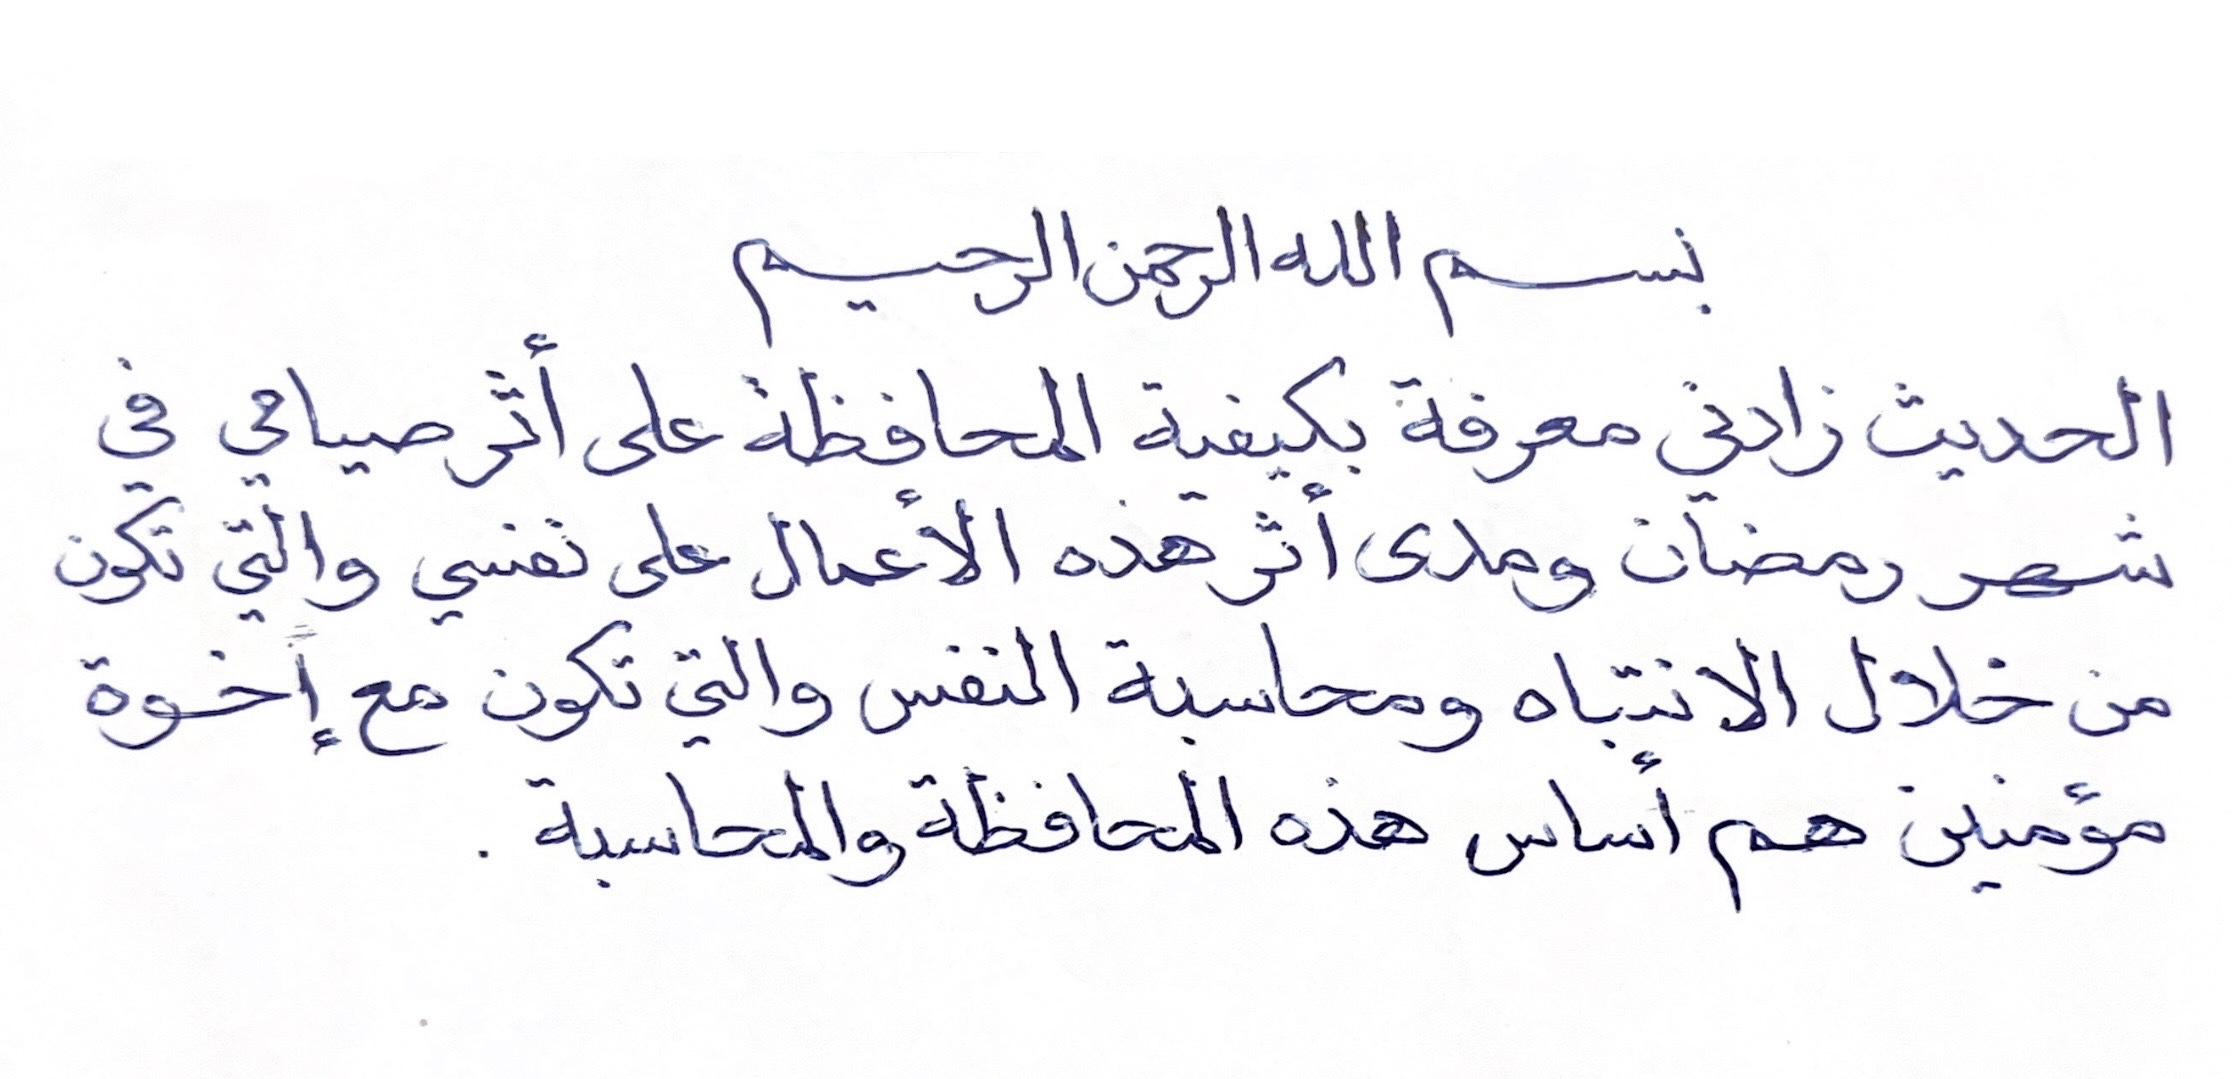 بسم الله الرحمن الرحيم
الحديث زادني معرفة بكيفية المحافظة على أثر صيامي في
شهر رمضان ومدى أثر هذه الأعمال على نفسي والتي تكون
من خلال الانتباه ومحاسبة النفس والتي تكون مع إخوة
مؤمنين هم أساس هذه المحافظة والمحاسبة .